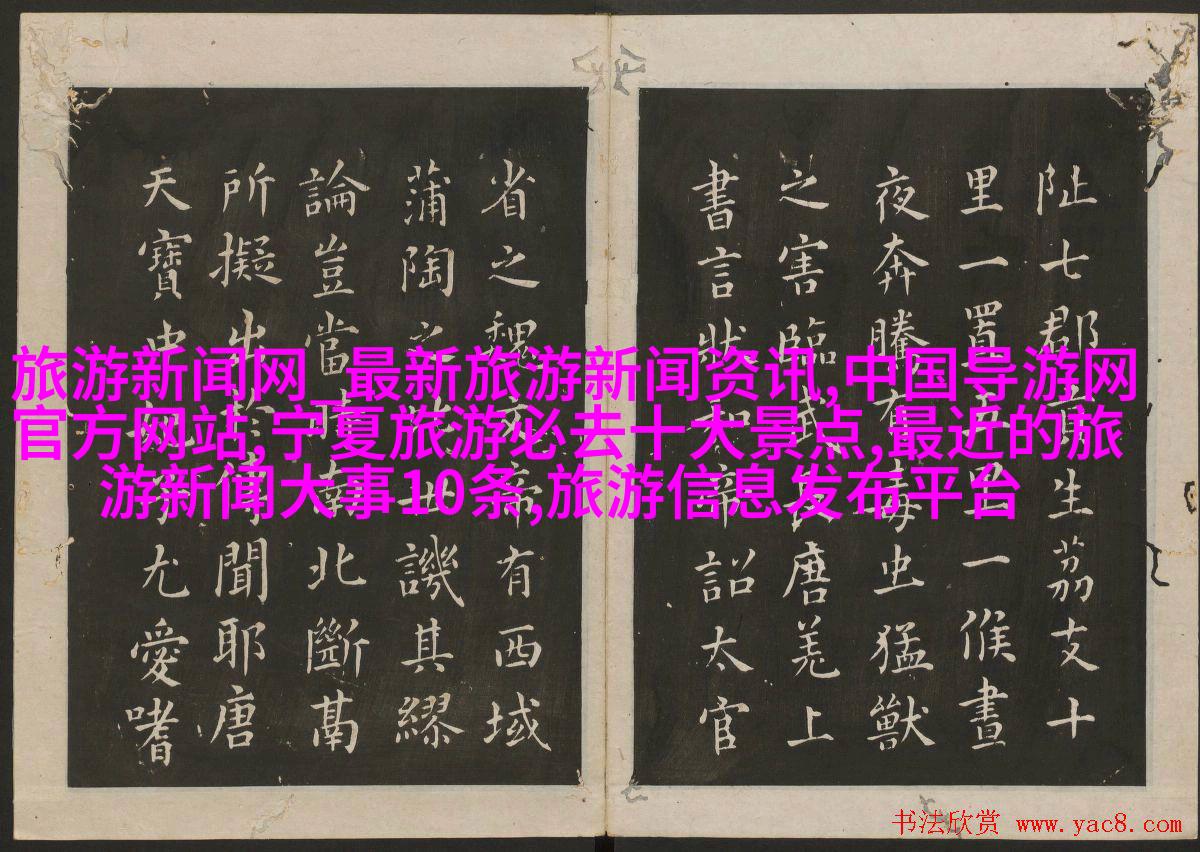 旅游新闻网_最新旅游新闻资讯,中国导游网
官方网站,宁夏旅游必去十大景点,最近的旅
游新闻大事10条,旅游信息发布平台
阯七郡貢生荔支十
里一置五里一候晝
夜奔騰有毒虫猛獸
之害臨武長唐羌上
書言狀和帝詔太官
省之魏文帝有西域
蒲陶之比世譏其繆
論豈當時南北斷鬲
所擬出於傳聞耶唐
天寶中妃子尤愛嗜
书法欣赏 www.yac8.com